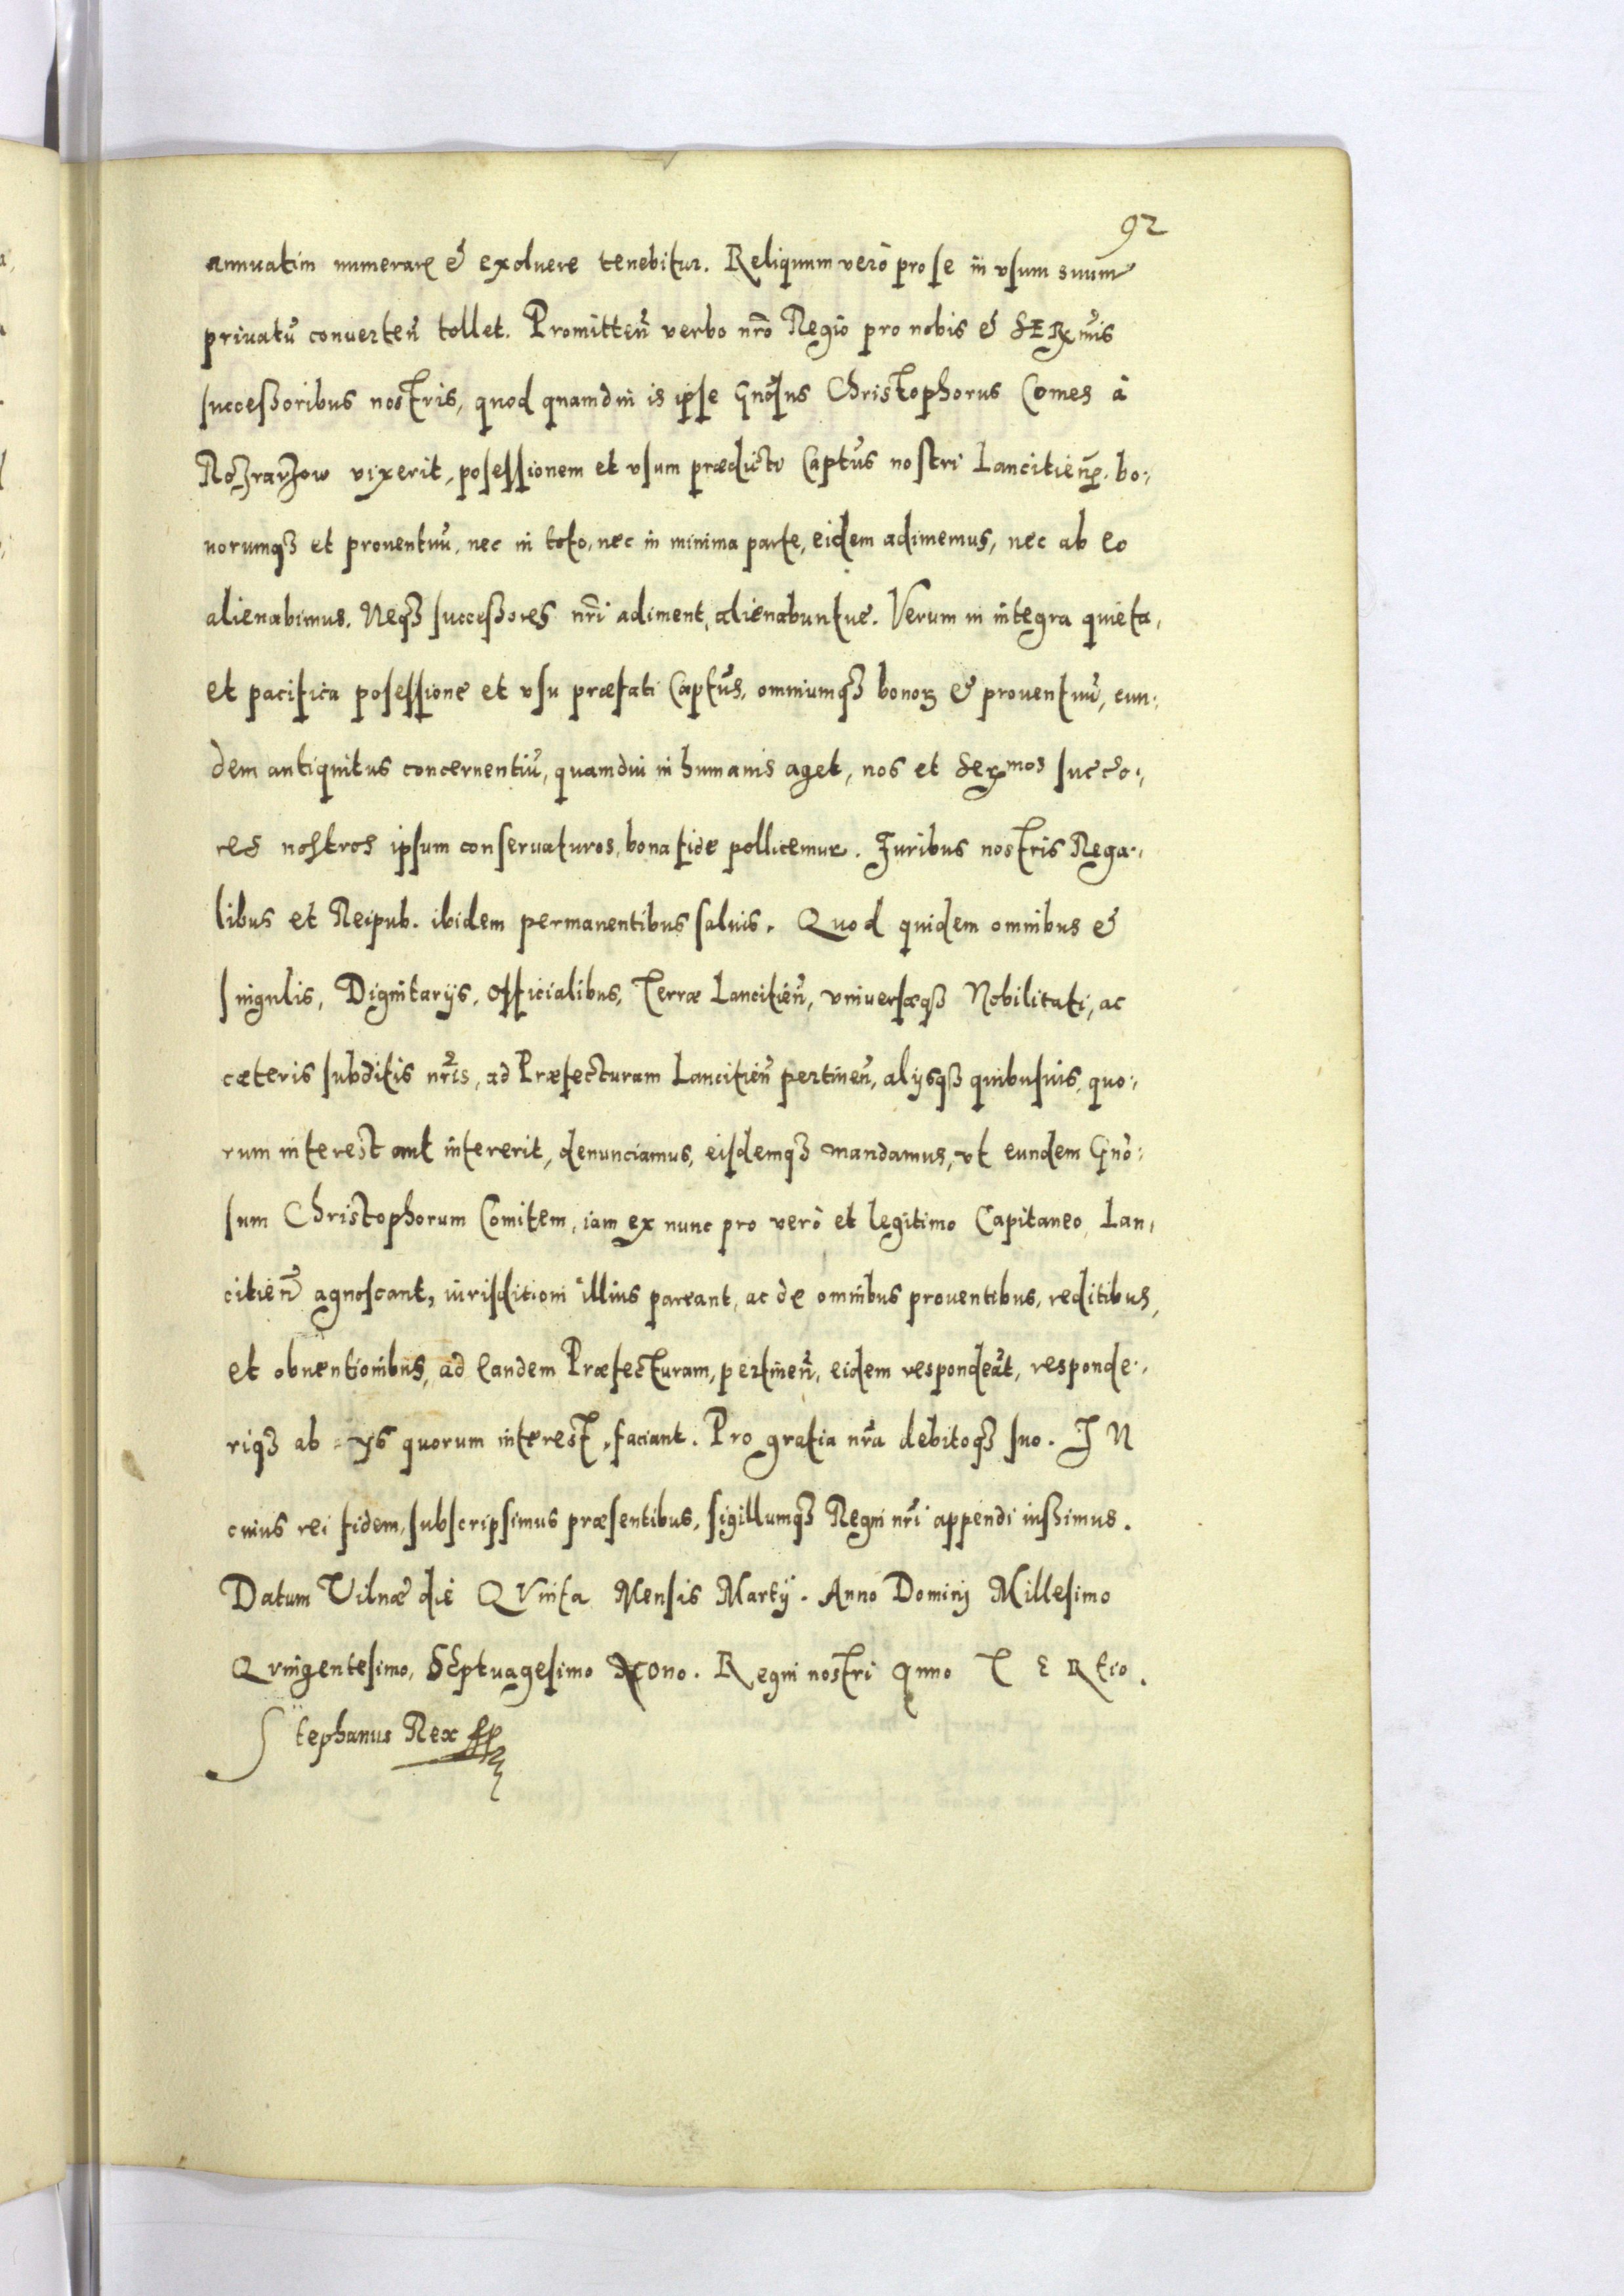 92
annuatim numerare et exoluere tenebitur. Reliquum verò pro se in vsum suum
priuatũ conuerteñ tollet. Promitteñ verbo nr̃o Regio pro nobis et SERmis
successoribus nostris, quod quamdiu is ipse Gnõsus Christophorus Comes à
Rozrazow vixerit, possessionem et vsum prædicti Captũs nostri Lancitieñ. bo:
norumqȝ et prouentuũ, nec in toto, nec in minima parte, eidem adimemus, nec ab eo
alienabimus. Neqȝ successores nr̃i adiment, alienabuntue. Verum in integra quieta,
et pacifica possessione et vsu præfati Captũs, omniumqȝ bonoꝝ et prouentuũ, eun:
dem antiquitus concernentiũ, quamdiu in humanis aget, nos et Sermos succo:
res nostros ipsum conseruaturos, bona fide pollicemur. Juribus nostris Rega:
libus et Reipub. ibidem permanentibus saluis. Quod quidem omnibus et
singulis, Dignitarijs, Officialibus, Terræ Lancitieñ, vniuersæqȝ Nobilitati, ac
cæteris subditis nr̃is, ad Præfecturam Lancitieñ pertineñ, alijsqȝ quibusuis, quo:
rum interest aut intererit, denunciamus, eisdemqȝ mandamus, vt eundem Gnõ:
sum Christophorum Comitem, iam ex nunc pro verò et legitimo Capitaneo Lan,
citieñ agnoscant, iurisditioni illius pareant, ac de omnibus prouentibus, reditibus,
et obuentionibus, ad eandem Præfecturam, pertineñ, eidem respondeãt, responde:
riqȝ ab ijs quorum interest, faciant. Pro gratia nr̃a debitoqȝ suo. IN
cuius rei fidem, subscripsimus præsentibus, sigillumqȝ Regni nr̃i appendi iussimus.
Datum Vilnæ die QVinta Mensis Martij. Anno Domini Millesimo
Qvingentesimo, SEptuagesimo Nono. Regni nostri Anno TERtio.
Stephanus Rex